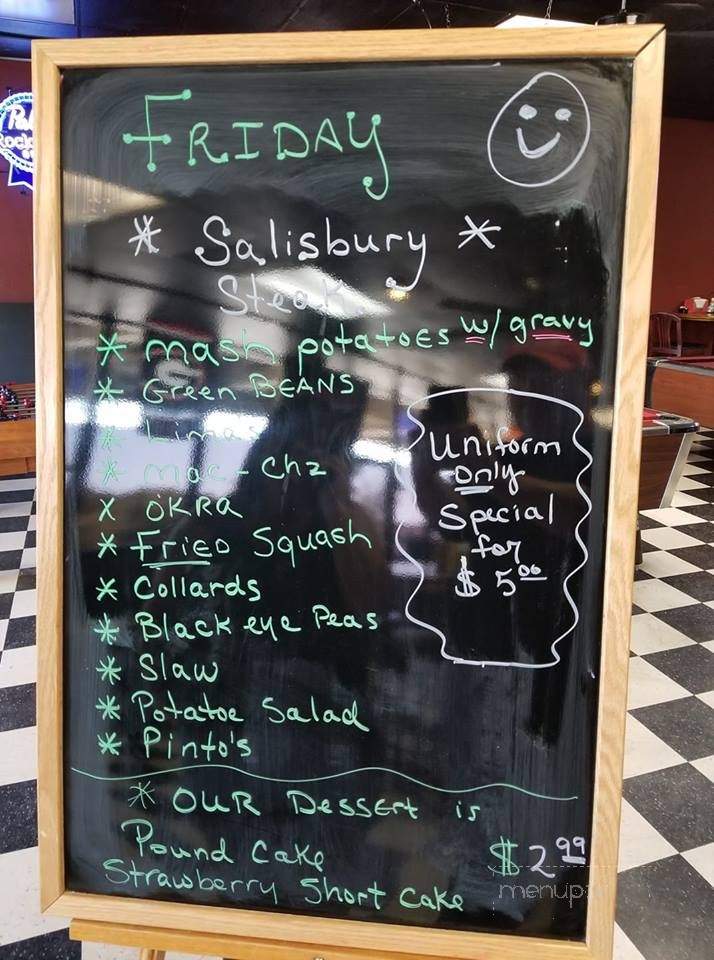 FRIDAY
* Salisbury *
Steak
* mash potatoes w/ gravy
* Green BEANS
* Limas
* mac - chz
x OKRa
* FrieD Squash
* Collards
* Black eye Peas
* Slaw
* Potatoe Salad
* Pinto's
Uniform
only
Special
for
$ 5.00
* OUR Dessert is
Pound Cake
$ 2.99
Strawberry Short Cake
menup